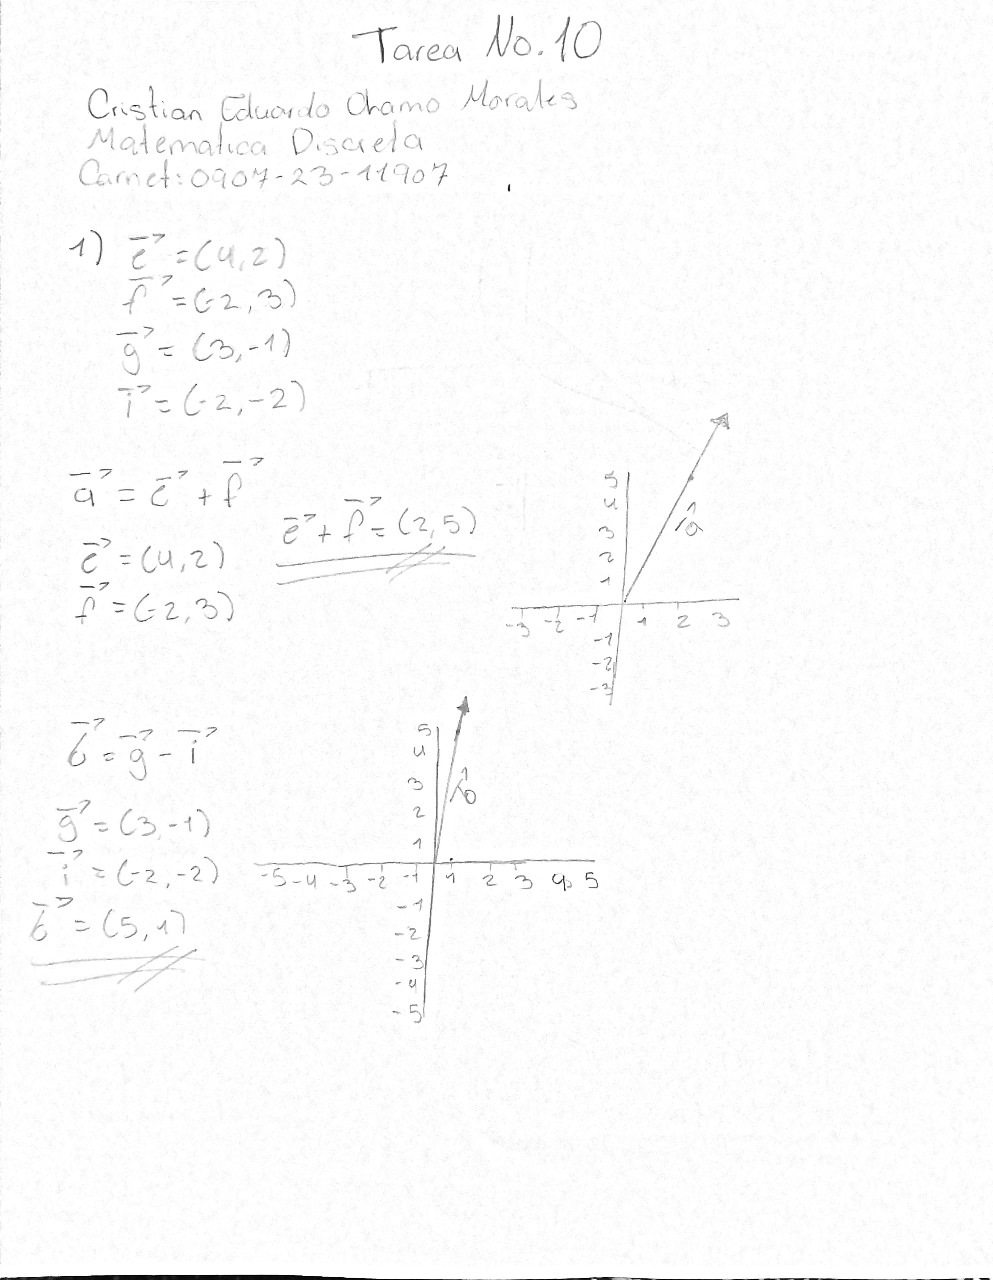 Tarea No. 10
Cristian Eduardo Chamo Morales
Matematica Discreta
Carnet: 0907-23-11907
1) e⃗ = (4,2)
f⃗ = (-2,3)
g⃗ = (3,-1)
i⃗ = (-2,-2)
a⃗ = e⃗ + f⃗
e⃗ = (4,2)
f⃗ = (-2,3)
e⃗ + f⃗ = (2,5)
5
4
3
2
1
a
-3 -2 -1 1 2 3
-1
-2
-3
b⃗ = g⃗ - i⃗
g⃗ = (3,-1)
i⃗ = (-2,-2)
b⃗ = (5,1)
5
4
3
2
1
b
-5 -4 -3 -2 -1 1 2 3 4 5
-1
-2
-3
-4
-5